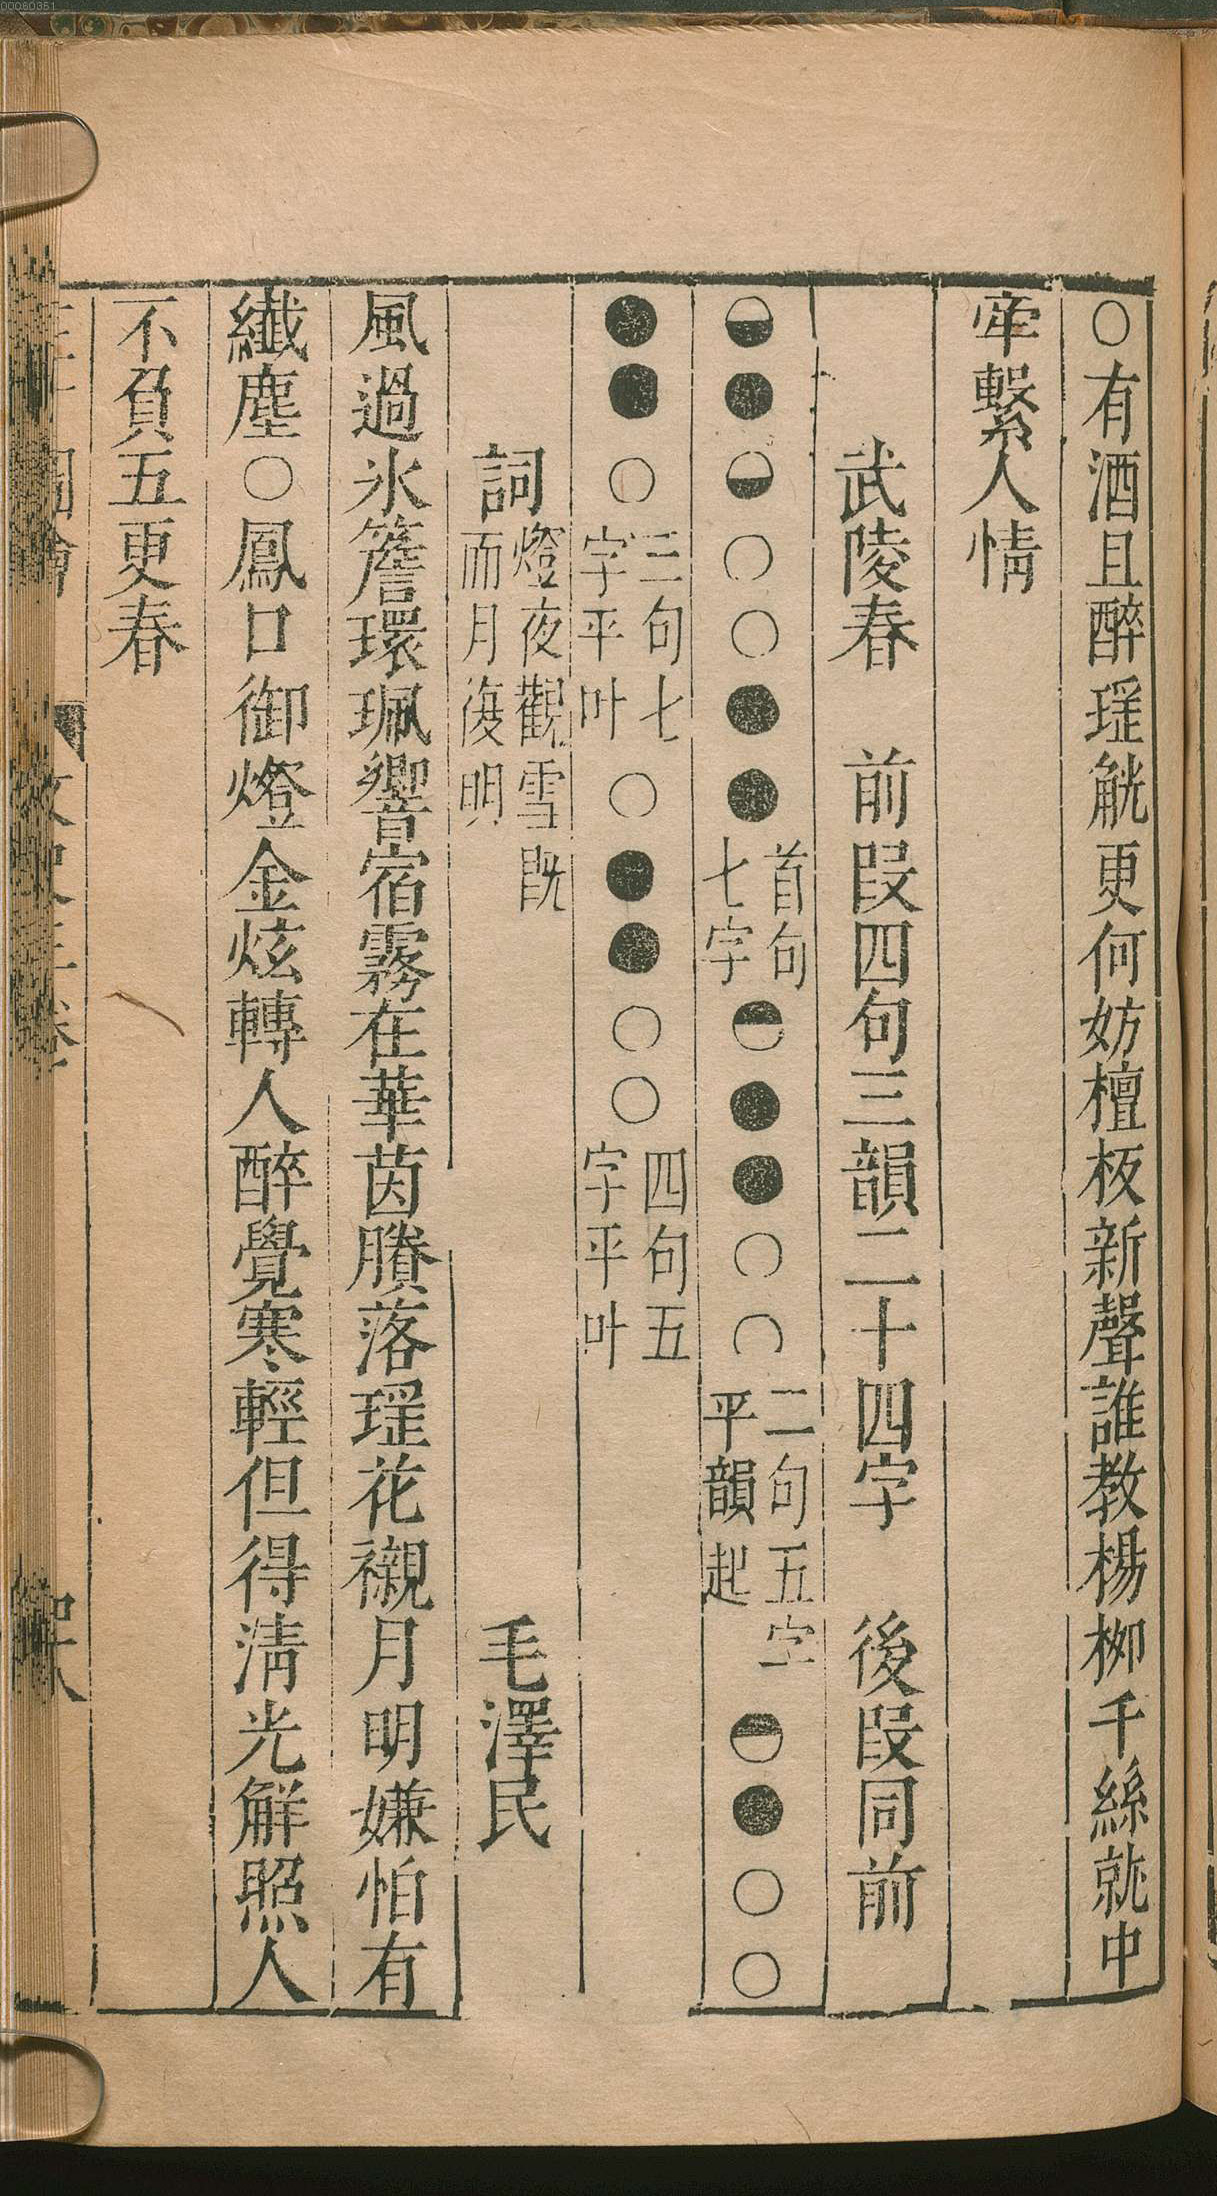 00060351
○有酒且醉瑶觥更何妨檀板新聲誰教楊栁千絲就中
牽繫人情
武陵春　前段四句三韻二十四字　後段同前
◒●◒○○●●首句七字◓●●○○二句五字平韻起◓●○○
●●○三句七字平叶○●●○○四句五字平叶
詞燈夜觀雪既而月復明　毛澤民
風過氷簷環珮響宿霧在華茵賸落瑶花襯月明嫌怕有
纖塵○鳳口御燈金炫轉人醉覺寒輕但得淸光解照人
不負五更春